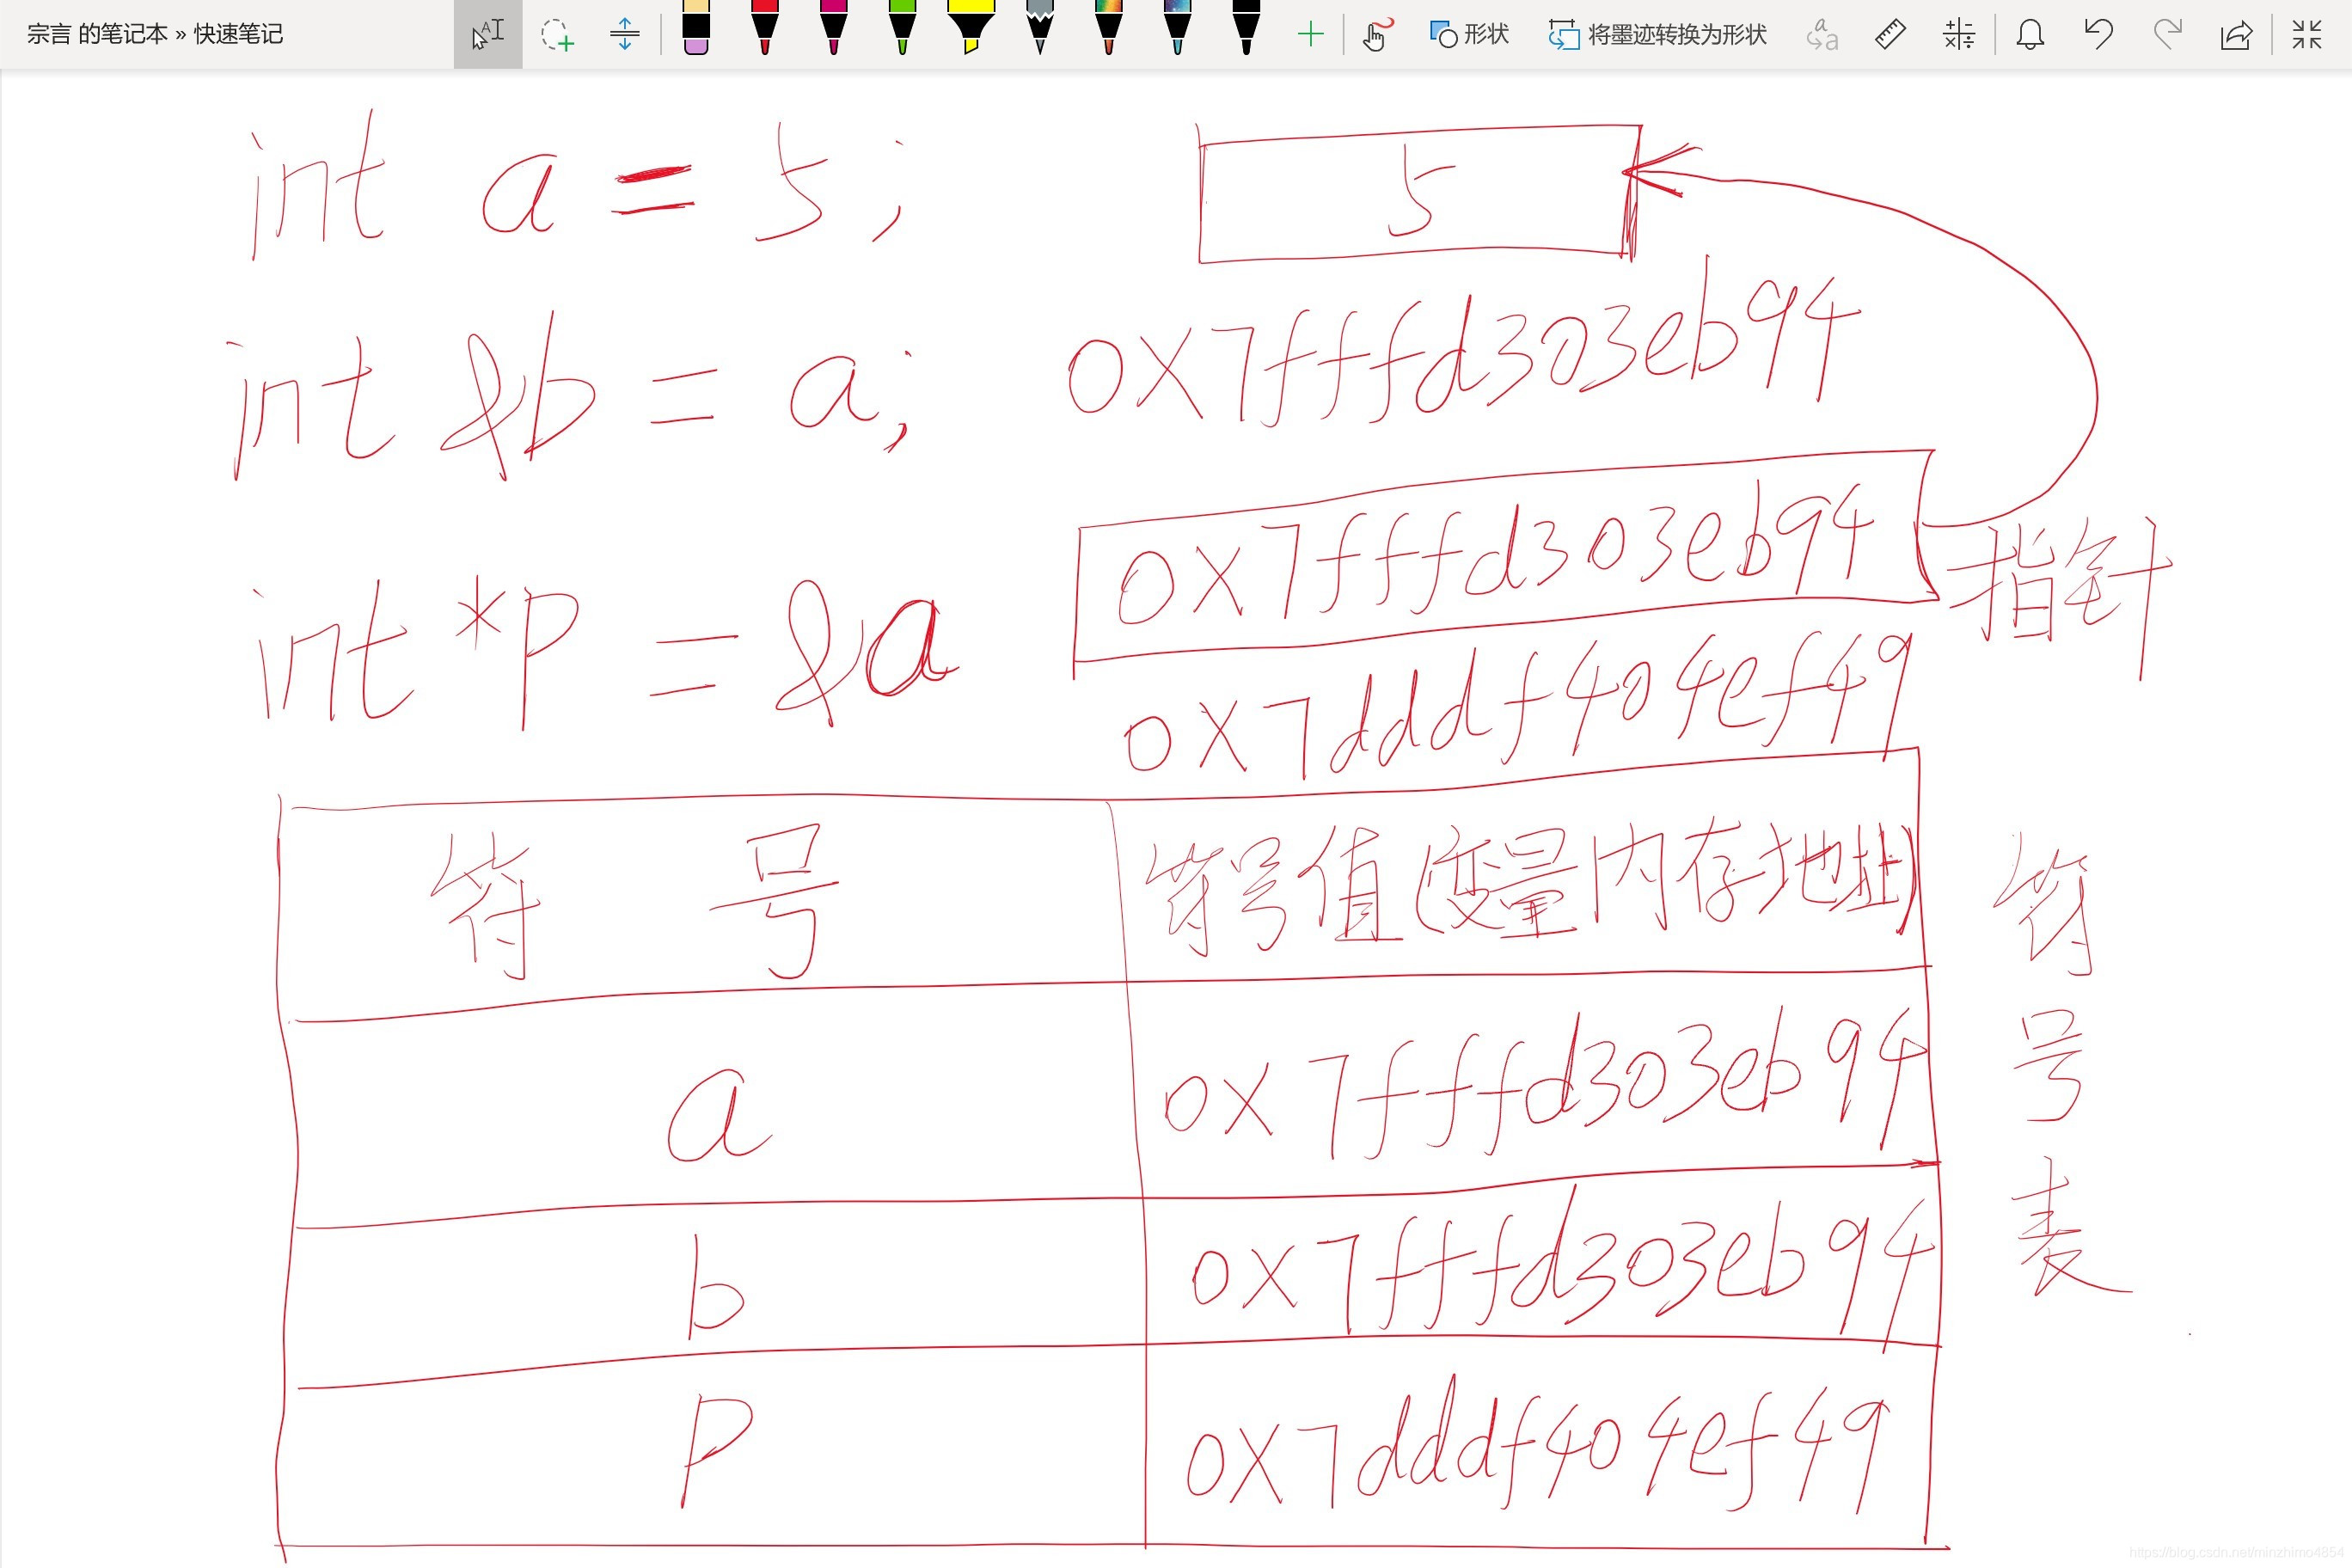 宗言 的笔记本 » 快速笔记
形状
将墨迹转换为形状
int a = 5;
5
int &b = a;
0x7fffd303eb94
0x7fffd303eb94
指针
int *p = &a
0x7dddf404ef49
符号
符号值(变量内存地址)
符号表
a
0x7fffd303eb94
b
0x7fffd303eb94
p
0x7dddf404ef49
https://blog.csdn.net/minzhimo4854